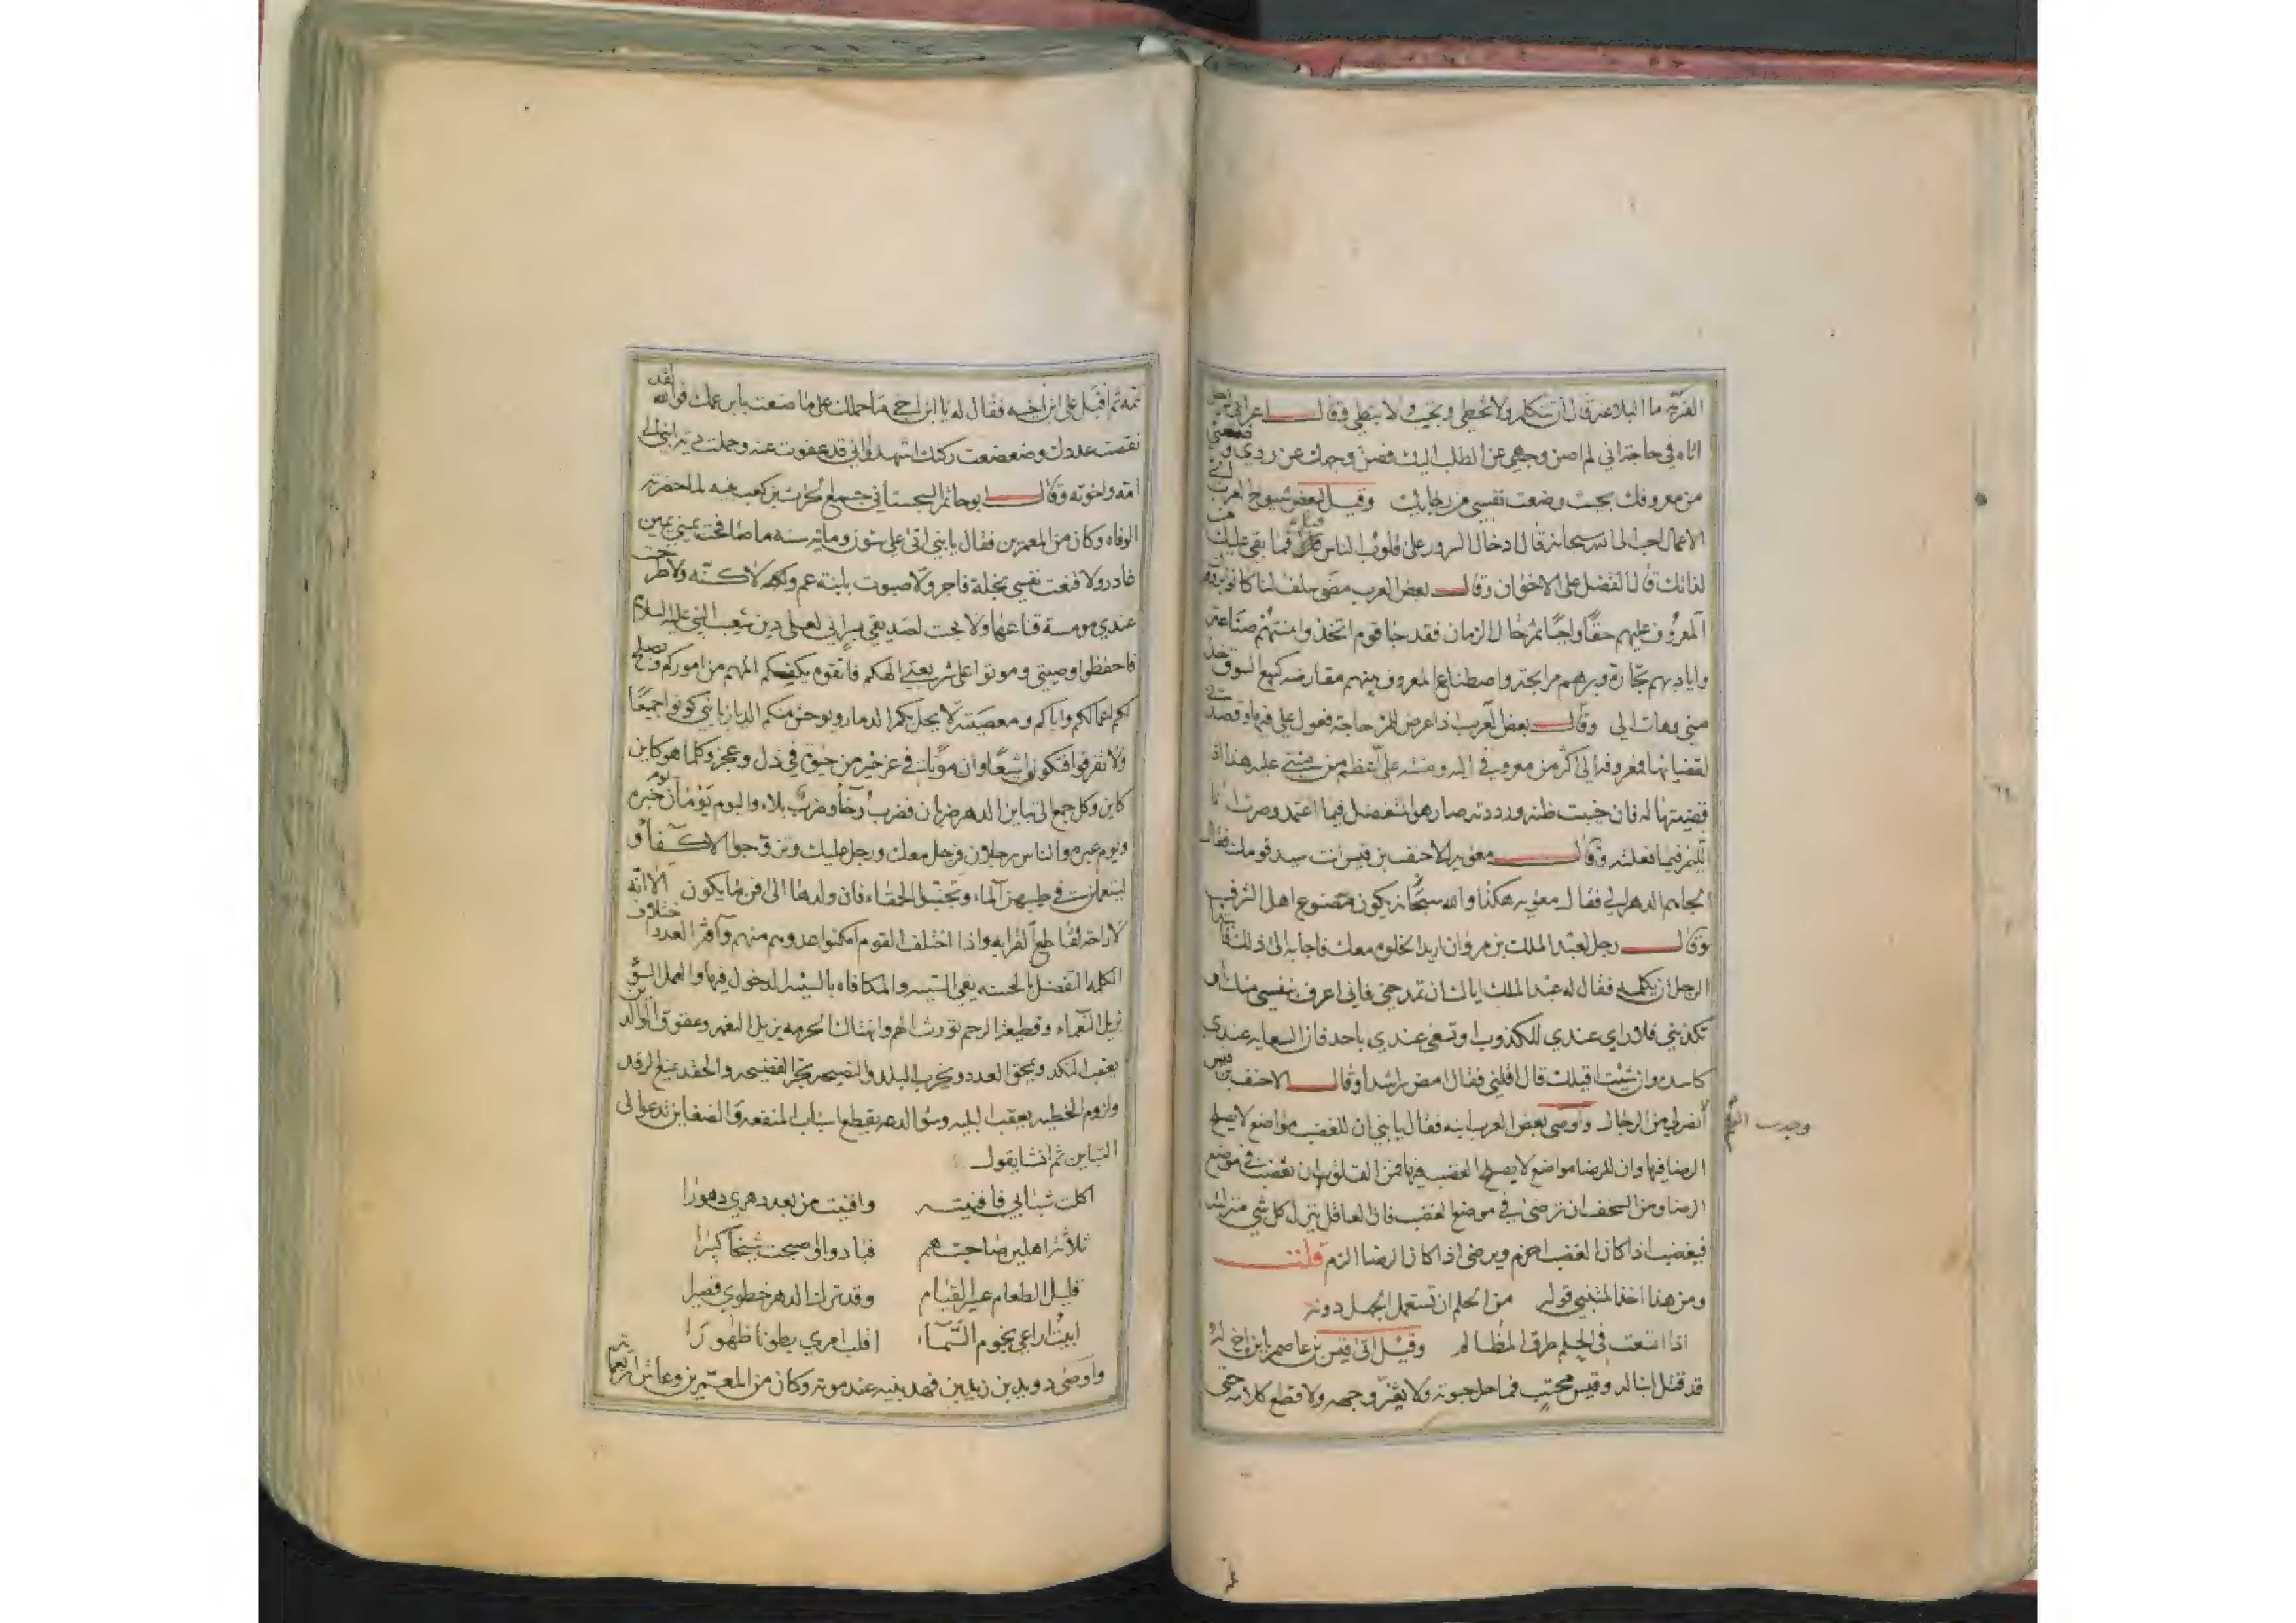 ما البلاغة قال ان تتكلم ولا تخطي وتجيب ولا تبطي وقال اعرابي
اتاه في حاجة اني لم اصن وجهي عن الطلب اليك فصن وجهك عن ردي
من معروفك بحيث وضعت نفسي من رجايك وقيل لبعض شيوخ العرب
الاعمال احب الى الله سبحانه قال ادخال السرور على قلوب الناس قيل فما بقي عليك
لذاتك قال الفضل على الاخوان وقال بعض العرب مضى سلف لنا كانوا يرون
المعروف عليهم حقا واجبا ثم حال الزمان فقد جا قوم اتخذوا منتهم صناعة
واياديهم تجارة وبرهم مرابحة واصطناع المعروف بينهم مقارضه كبيع السوق خذ
مني وهات الي وقال بعض العرب اذا عرض للمرء حاجة فعول علي فيها وقصدني
لقضيانها فمعروفه الي اكثر من معروفي اليه ومنته علي اعظم من منتي عليه هذا اذا
قضيتها له فان خيبت ظنه ورددته صار هو المتفضل فيما اعتمد وصرت انا
فيما فعلته وقال معويه للاحنف بن قيس انت سيد قومك فقال
الدهر الي فقال معويه هكذا والله سبحانه يكون اهل الشرف
وقال رجل لعبد الملك بن مروان اريد الخلوه معك فاجابه الى ذلك
الرجل ان يكلمه فقال له عبد الملك اياك ان تمدحني فاني اعرف بنفسي منك او
تكذبني فلا راي عندي للكذوب او تسعى عندي باحد فان السعايه عندي
كاسده وان شئت اقيلك قال اقلني فقال امض راشدا وقال الاحنف بن قيس
من الرجال واوصى بعض العرب ابنه فقال يا بني ان للغضب مواضع لا يصلح
الرضا فيها وان للرضا مواضع لا يصلح الغضب فيها فمن ان تغضب في موضع
الرضا ومن السخف ان ترضى في موضع الغضب فان العاقل ينزل كل شي منزلته
فيغضب اذا كان الغضب احزم ويرضى اذا كان الرضا الزم قلت
ومن هنا اخذ المتنبي قوله من الحلم ان تستعمل الجهل دونه
اذا اتسعت في الحلم طرق المظالم وقيل اتى قيس بن عاصم بابن اخ له
قد قتل ابنا له وقيس محتب فما حل حبوته ولا تغير وجهه ولا قطع كلامه حتى
ثم اقبل على ابن اخيه فقال له يا ابن اخي ما حملك على ما صنعت بابن عمك فوالله لقد
نقصت عددك وضعضعت ركنك اشهد اني قد عفوت عنه وحملت ديته الى
امه واخوته وقال ابو حاتم السجستاني جمع الحرث بن كعب بنيه لما حضرته
الوفاه وكان من المعمرين فقال يا بني اتى علي ستون ومائة سنه ما صافحت يميني يمين
غادر ولا قنعت نفسي بخلة فاجر ولا صبوت بابنة عم ولا كنه ولا طرحت
عندي مومسة قناعها ولا بحت لصديقي بسر اني لعلى دين شعيب النبي عليه السلام
فاحفظوا وصيتي وموتوا على شريعتي الهكم فاتقوه يكفكم المهم من اموركم ويصلح
لكم اعمالكم واياكم ومعصيته لا يحل بكم الدمار ويوحش منكم الديار يا بني كونوا جميعا
ولا تفرقوا فتكونوا شيعا وان موتا في عز خير من حيوة في ذل وعجز وكلما هو كاين
كاين وكل جمع الى تباين الدهر ضربان فضرب رخاء وضرب بلاء واليوم يومان يوم خبره
ويوم عبره والناس رجلان فرجل معك ورجل عليك وتزوجوا الاكفاء و
ليستعملن في طيبهن الماء وتجنبوا الحمقاء فان ولدها الى افن ما يكون الا انه
لا راحة لقاطع القرابه واذا اختلف القوم امكنوا عدوهم منهم وآفة العدد اختلاف
الكلمه التفضل بالحسنه يقي السيئه والمكافاه بالسيئه الدخول فيها والعمل السوء
يزيل النعماء وقطيعة الرحم تورث الهم وانتهاك الحرمه يزيل النعمه وعقوق الوالدين
يعقب النكد ويمحق العدد ويخرب البلد والنصيحه تجر الفضيحه والحقد يمنع الرفد
ولزوم الخطيه يعقب البليه وسو الدعه يقطع اسباب المنفعه والضغاين تدعو الى
التباين ثم انشا يقول
اكلت شبابي فافنيته وافنيت من بعد دهري دهورا
ثلاثة اهلين صاحبتهم فبادوا واصبحت شيخا كبيرا
قليل الطعام عسر القيام وقد ترك الدهر خطوي قصيرا
ابيت اراعي نجوم السماء اقلب امري بطونا ظهورا
واوصى دويد بن زيد بن نهد بنيه عند موته وكان من المعمرين وعاش اربعمايه